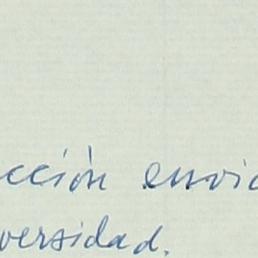 cción envio
versidad.